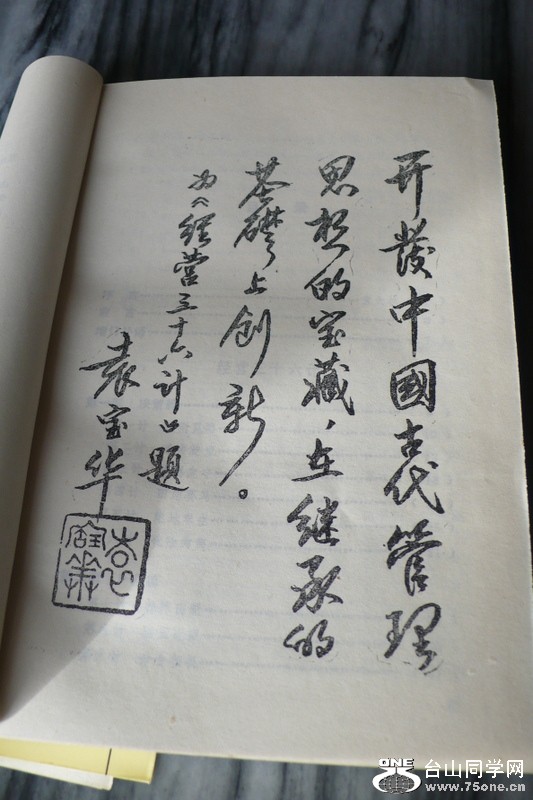 开發中國古代管理
思想的宝藏，在继承的
基礎上创新。
为《經营三十六计》题
袁宝华
袁寳華
ONE 台山同学网
www.75one.cn